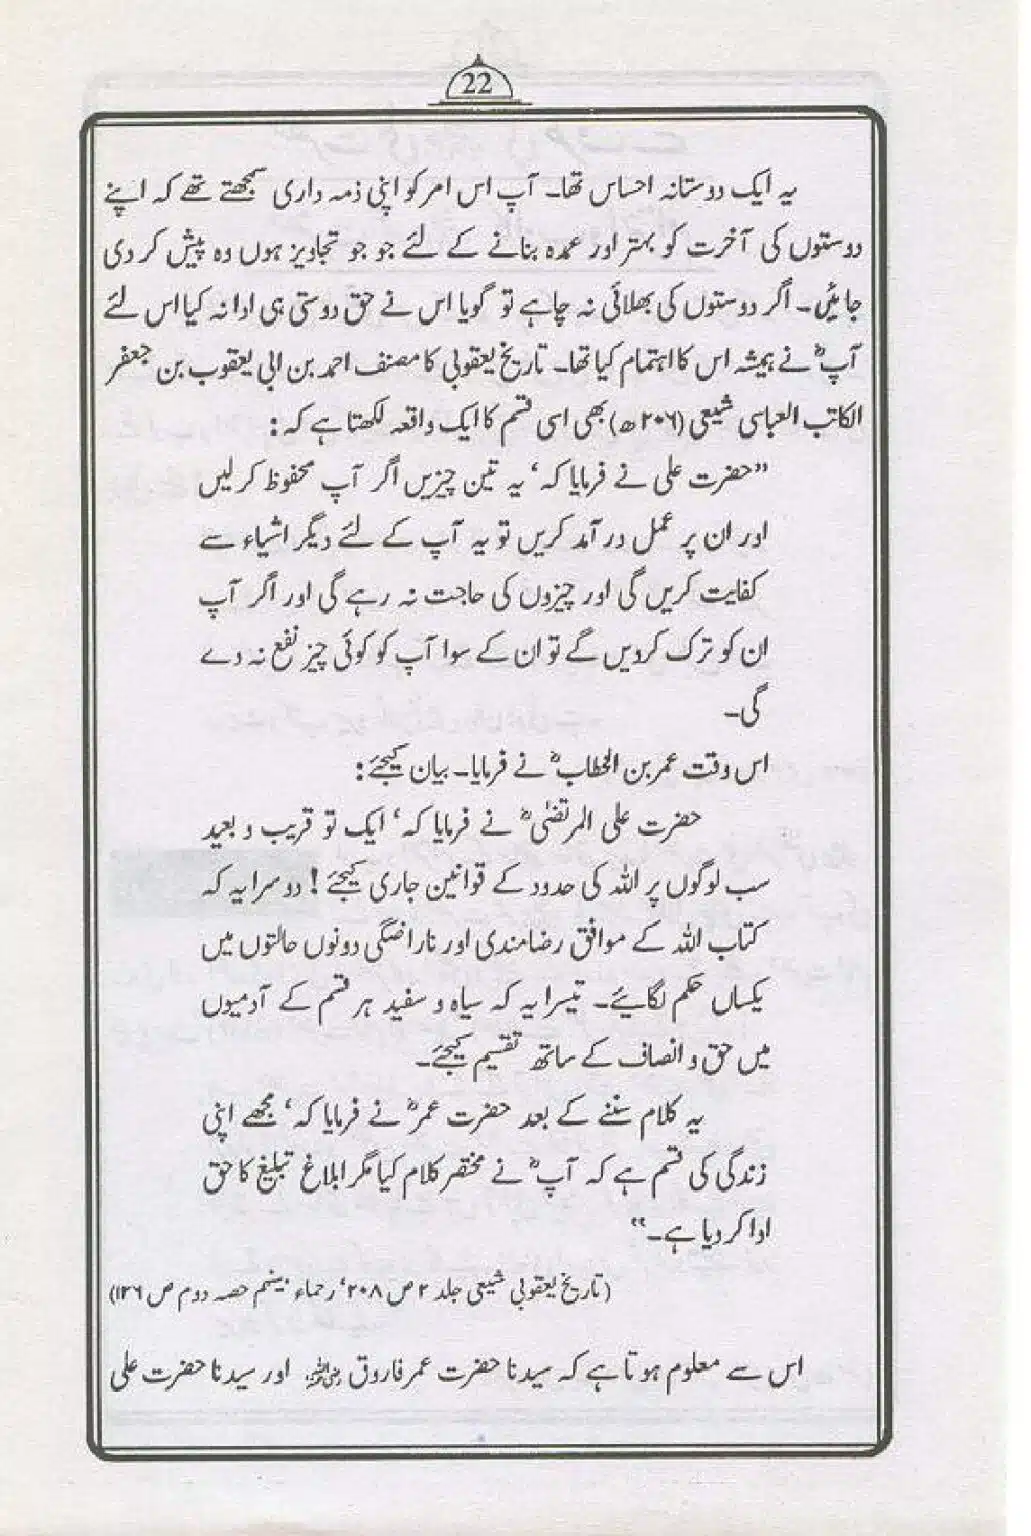 22
یہ ایک دوستانہ احساس تھا۔ آپ اس امر کو اپنی ذمہ داری سمجھتے تھے کہ اپنے
دوستوں کی آخرت کو بہتر اور عمدہ بنانے کے لئے جو جو تجاویز ہوں وہ پیش کر دی
جائیں۔ اگر دوستوں کی بھلائی نہ چاہے تو گویا اس نے حق دوستی ہی ادا نہ کیا اس لئے
آپؓ نے ہمیشہ اس کا اہتمام کیا تھا۔ تاریخ یعقوبی کا مصنف احمد بن ابی یعقوب بن جعفر
الکاتب العباسی شیعی (۲۰۶ھ) بھی اسی قسم کا ایک واقعہ لکھتا ہے کہ:
”حضرت علی نے فرمایا کہ‘ یہ تین چیزیں اگر آپ محفوظ کر لیں
اور ان پر عمل در آمد کریں تو یہ آپ کے لئے دیگر اشیاء سے
کفایت کریں گی اور چیزوں کی حاجت نہ رہے گی اور اگر آپ
ان کو ترک کردیں گے تو ان کے سوا آپ کو کوئی چیز نفع نہ دے
گی۔
اس وقت عمر بن الخطابؓ نے فرمایا۔ بیان کیجئے:
حضرت علی المرتضیٰؓ نے فرمایا کہ‘ ایک تو قریب و بعید
سب لوگوں پر اللہ کی حدود کے قوانین جاری کیجئے! دوسرا یہ کہ
کتاب اللہ کے موافق رضامندی اور ناراضگی دونوں حالتوں میں
یکساں حکم لگایئے۔ تیسرا یہ کہ سیاہ و سفید ہر قسم کے آدمیوں
میں حق و انصاف کے ساتھ تقسیم کیجئے۔
یہ کلام سننے کے بعد حضرت عمرؓ نے فرمایا کہ‘ مجھے اپنی
زندگی کی قسم ہے کہ آپؓ نے مختصر کلام کیا مگر ابلاغ تبلیغ کا حق
ادا کر دیا ہے۔“
(تاریخ یعقوبی شیعی جلد ۲ ص ۲۰۸‘ رحماء بینہم حصہ دوم ص ۱۲۶)
اس سے معلوم ہوتا ہے کہ سیدنا حضرت عمر فاروق رضی اللہ عنہ اور سیدنا حضرت علی